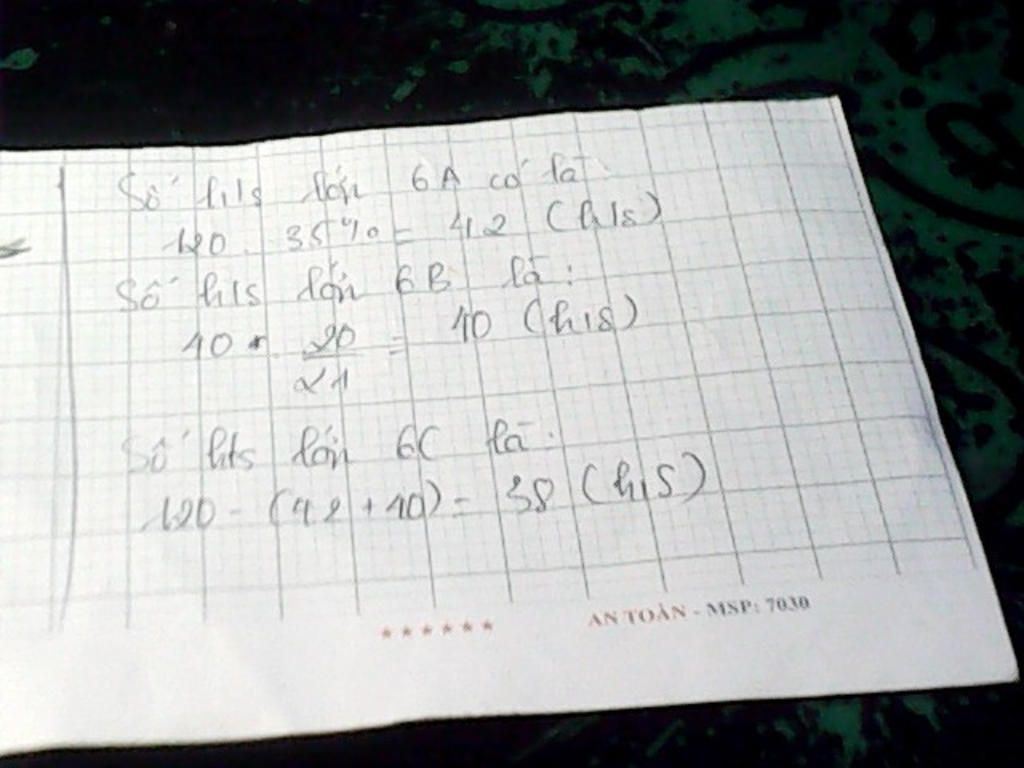 Số h/s lớp 6A có là:
120 . 35% = 42 (h/s)
Số h/s lớp 6B là:
40 . 20/21 = 40 (h/s)
Số h/s lớp 6C là:
120 - (42 + 40) = 38 (h/s)
****** AN TOÀN - MSP: 7030